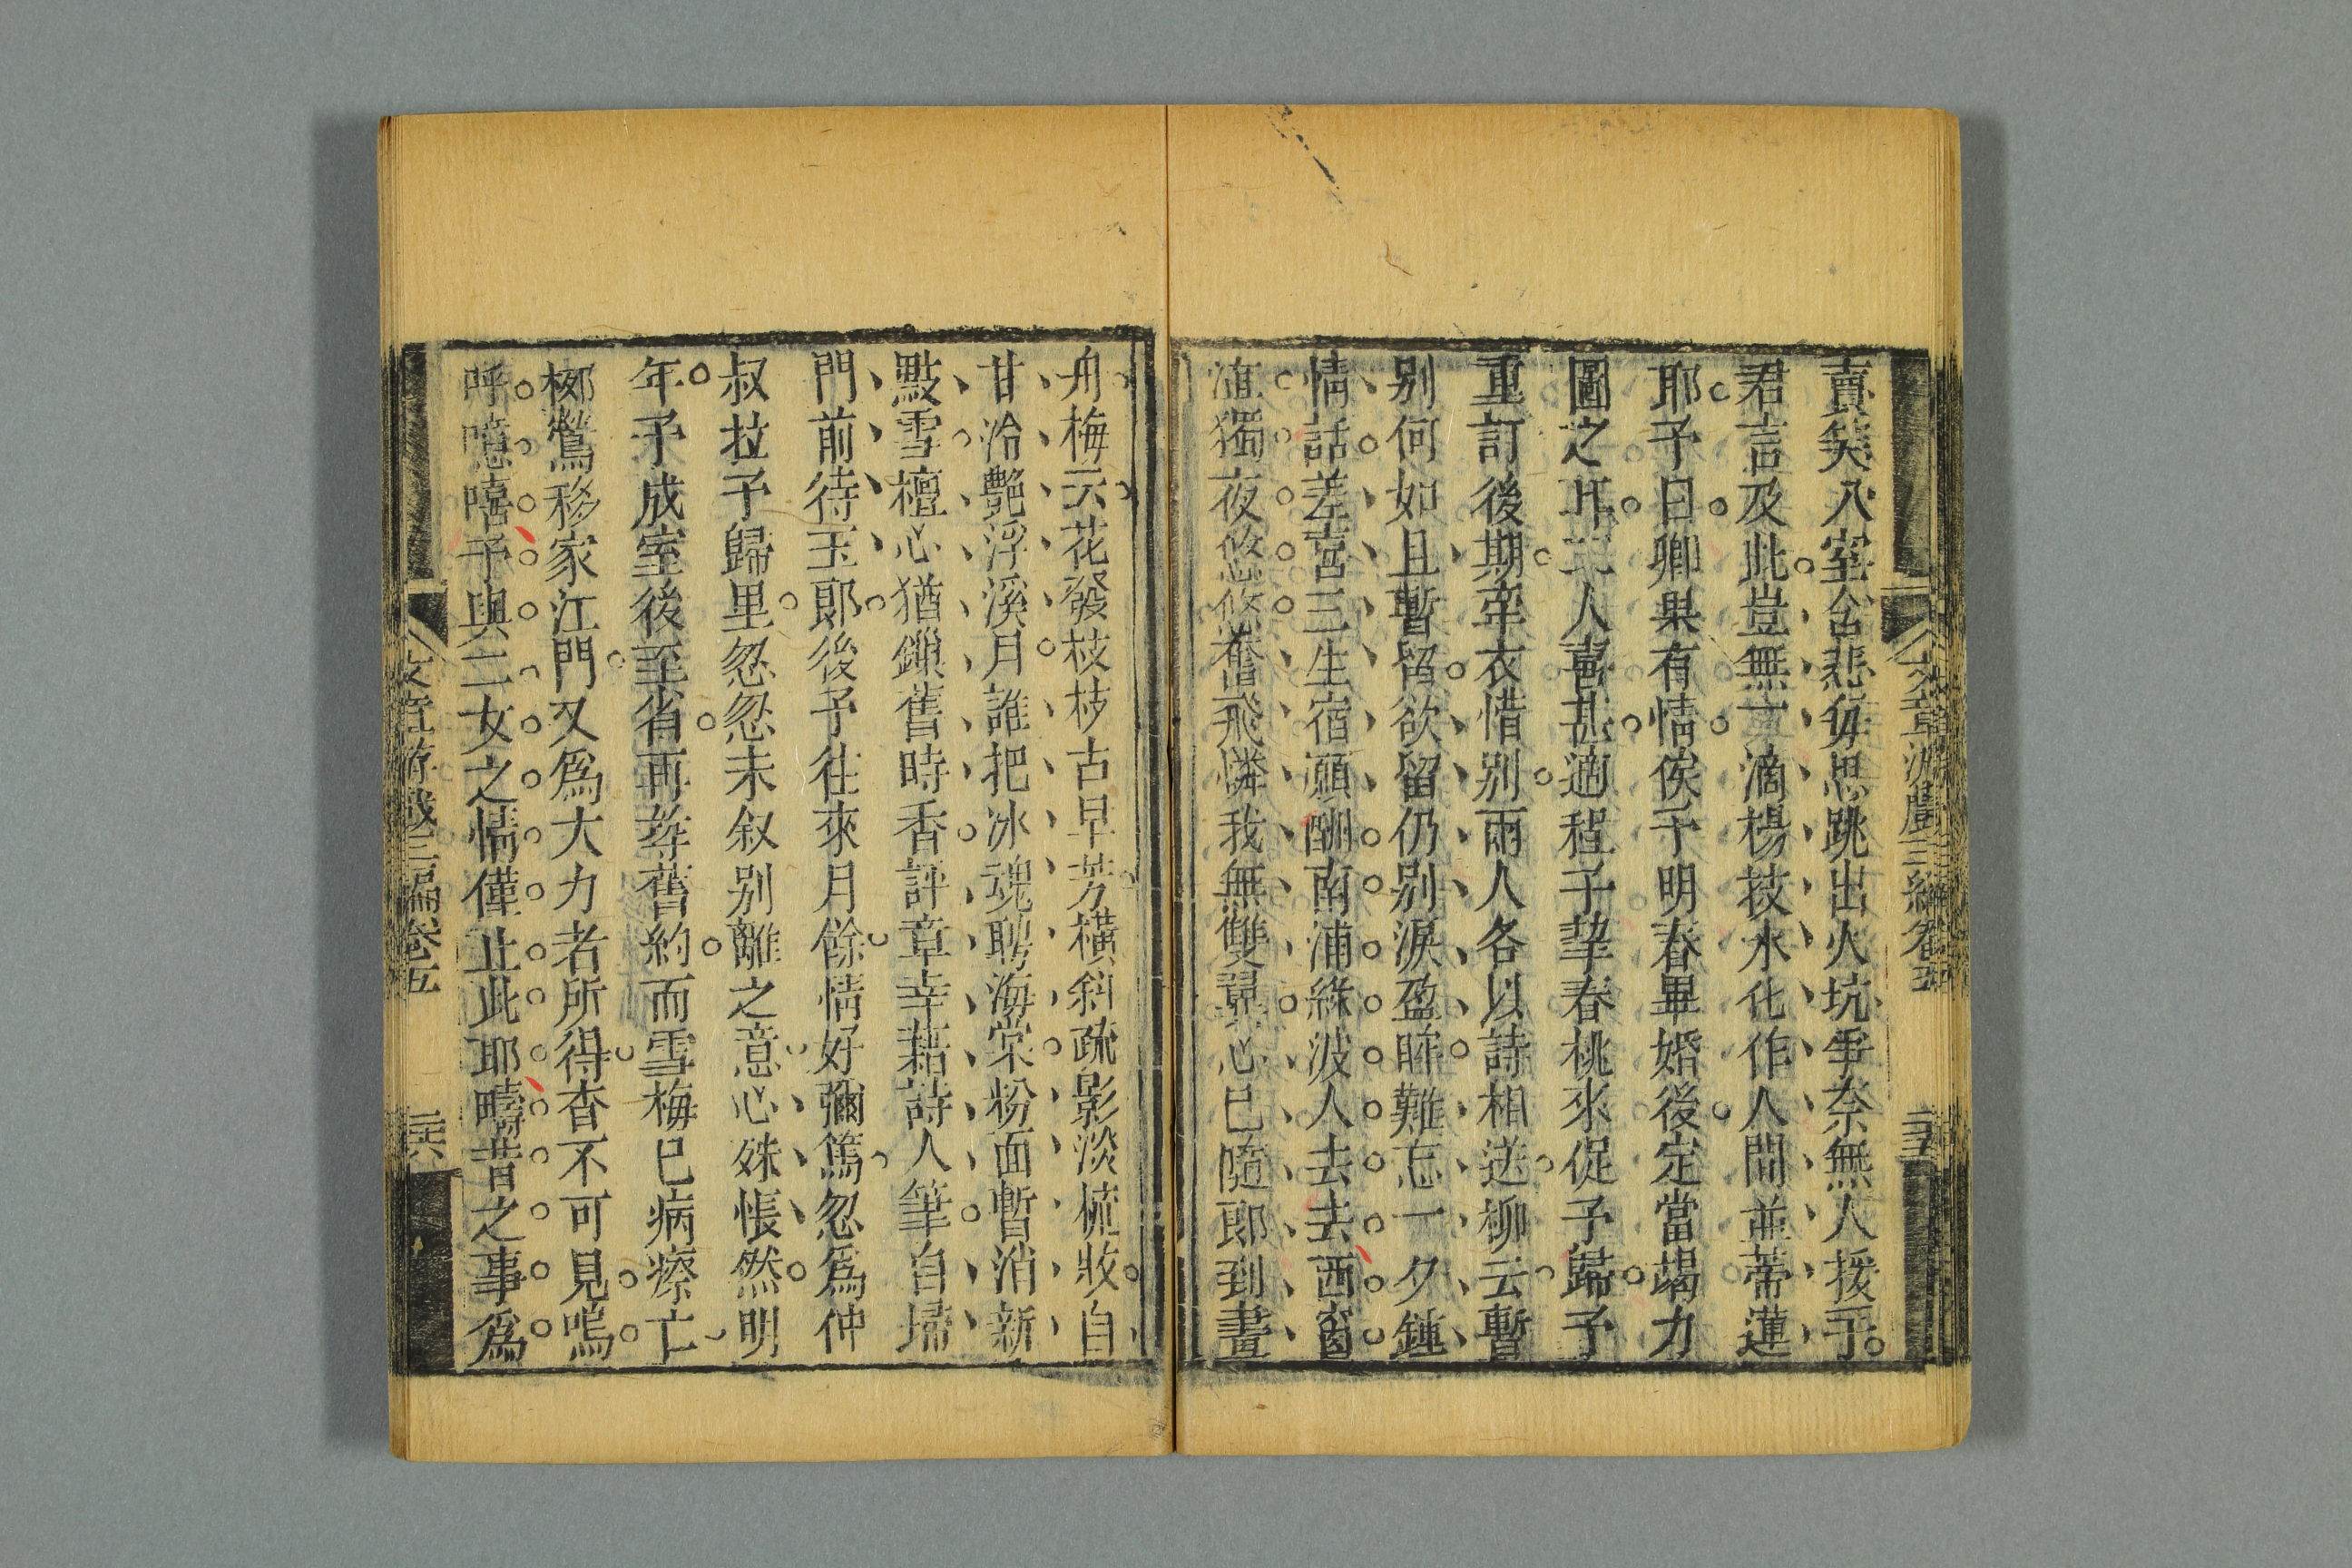 賣笑入室含悲每思跳出火坑爭奈無人援手
君言及此豈無一滴楊枝水化作人間並蒂蓮
耶予曰卿果有情俟予明春畢婚後定當竭力
圖之耳二人喜甚適程子挈春桃來促予歸予
重訂後期牽衣惜別兩人各以詩相送柳云暫
別何如且暫留欲留仍別淚盈眸難忘一夕鍾
情話差喜三生宿願酬南浦綠波人去去西窗
獨夜悠悠奮飛憐我無雙翼心已隨郎到畫
舟梅云花發枝枝古早芳橫斜疏影淡梳妝自
甘冷艷浮溪月誰把冰魂聘海棠粉面暫消新
點雪檀心猶鎖舊時香評章幸藉詩人筆自埽
門前待玉郎後予往來月餘情好彌篤忽爲仲
叔拉予歸里怱怱未叙別離之意心殊悵然明
年予成室後至省再尋舊約而雪梅已病瘵亡
柳鶯移家江門又爲大力者所得杳不可見嗚
呼噫嘻予與二女之情僅止此耶疇昔之事爲
文章游戲三編卷五